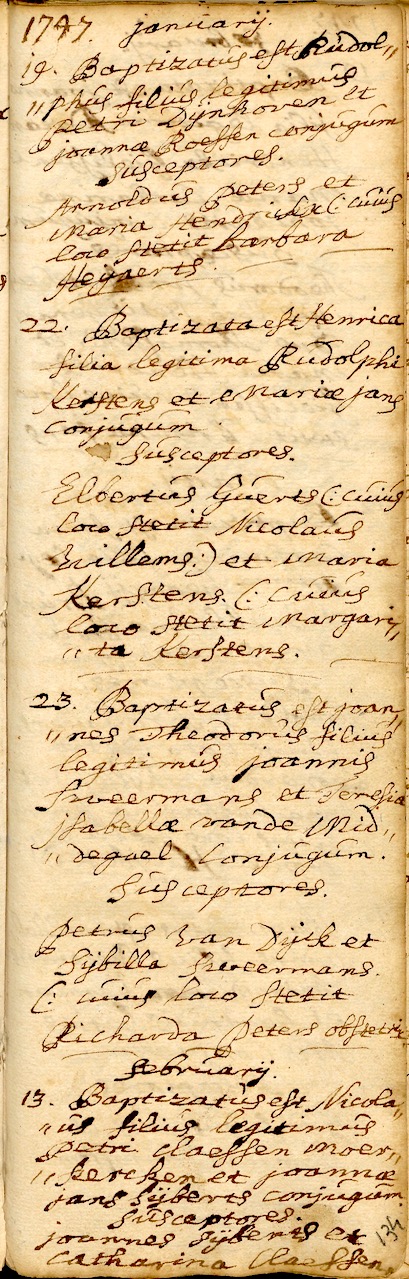 1747. januarij.
19. Baptizatus est Rudol„
„phus filius legitimus
Petri Dijnkoven et
joannæ Roessen conjugum
susceptores.
Arnoldus Peters et
Maria Hendrickx (: cuius
loco stetit barbara
Heijnerts.
22. Baptizata est Henrica
filia legitima Rudolphi
Kerstens et Mariæ jans
conjugum
susceptores.
Elbertus Guerts (: cuius
loco stetit Nicolaus
Willems:) et Maria
Kerstens. (: cuius
loco stetit Margari„
„ta Kerstens.
23. Baptizatus est joan„
„nes Theodorus filius
legitimus joannis
Sweermans et Teresia
jsabellæ vande Mid„
„degael conjugum.
Susceptores.
Petrus van Dijck et
Sijbilla Sweermans.
(: cuius loco stetit
Richarda Peters obstetrix
februarij.
13. Baptizatus est Nicola„
„us filius legitimus
Petri Claessen Moer„
„kercken et joannæ
jans Sijberts conjugum
susceptores.
joannes Sijberts et
Catharina Claessen.
134